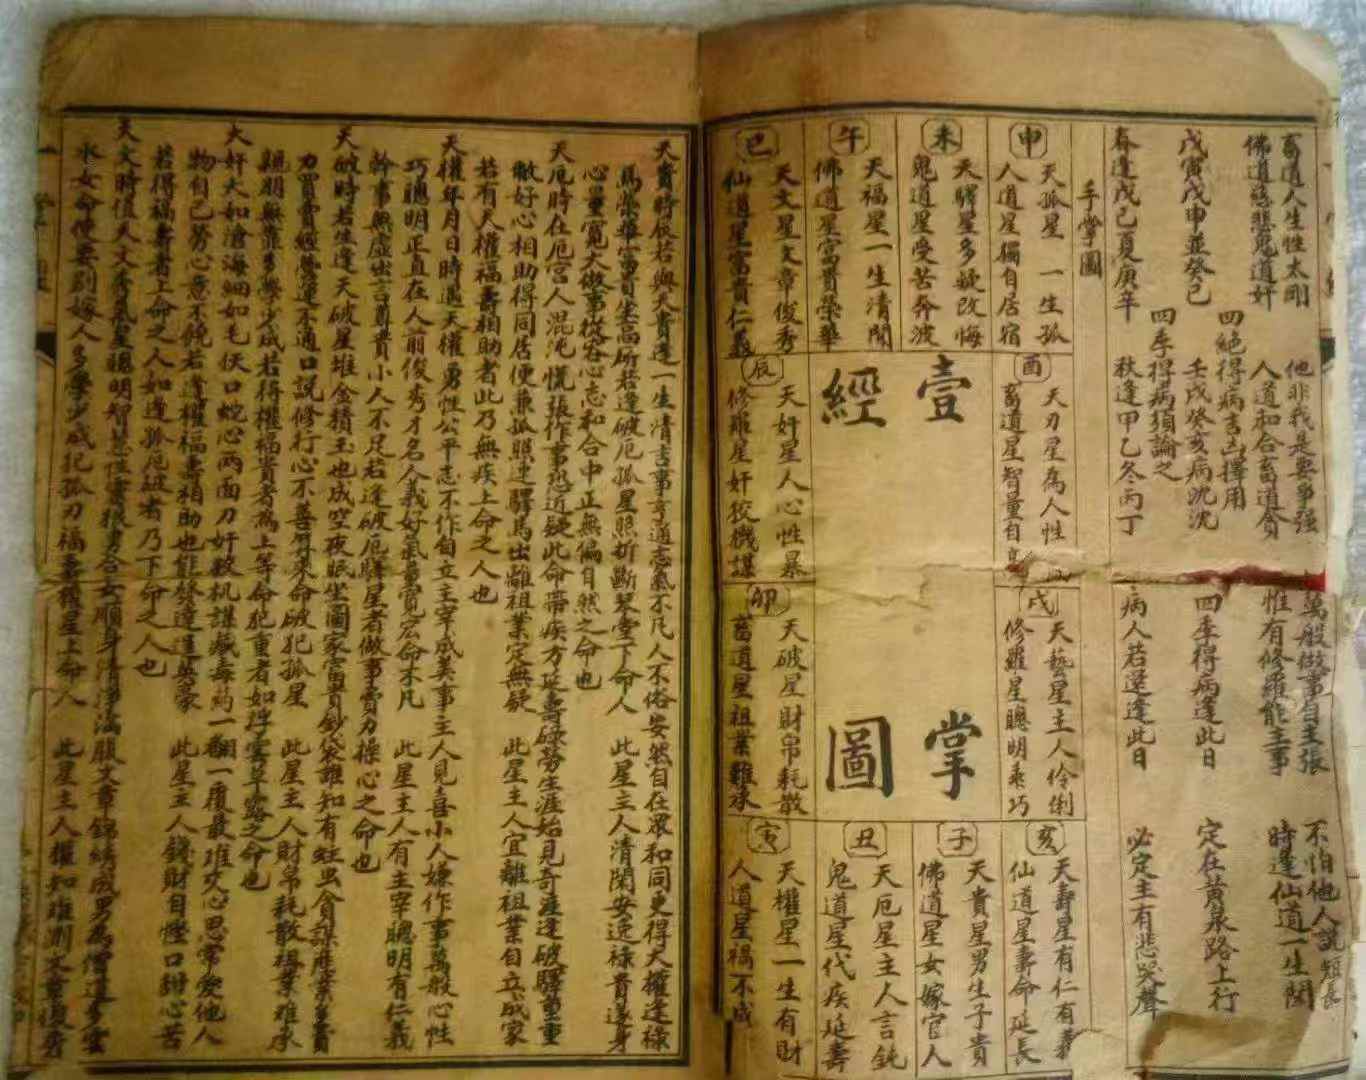 畜道人生性太剛
他非我是要事強
萬般做事自主張
不怕他人說短長
佛道慈悲鬼道奸
人道和合畜道貪
惟有修羅能主事
時逢仙道一生閒
四絕得病吉凶擇用
戊寅戊申並癸巳
壬戌癸亥病沈沈
四季得病逢此日
定在黃泉路上行
四季得病須論之
春逢戊己夏庚辛
秋逢甲乙冬丙丁
病人若還逢此日
必定主有悲哭聲
手掌圖
申
天孤星一生孤
人道星獨自居宿
未
天驛星多疑改悔
鬼道星受苦奔波
午
天福星一生清閒
佛道星富貴榮華
巳
天文星文章俊秀
仙道星富貴仁義
酉
天刃星為人性
畜道星智量自高
壹
經
辰
天奸星人心性暴
修羅星奸狡機謀
戌
天藝星主人伶俐
修羅星聰明乖巧
掌
圖
卯
天破星財帛耗散
畜道星祖業難承
亥
天壽星有仁有義
仙道星壽命延長
子
天貴星男生子貴
佛道星女嫁官人
丑
天厄星主人言鈍
鬼道星代疾延壽
寅
天權星一生有財
人道星禍不成
天貴時辰若與天貴逢一生清吉事亨通志氣不凡人不俗安然自在眾和同更得天權逢祿
馬榮華富貴坐高所若逢破厄孤星照折斷琴堂下命人 此星主人清閑安逸祿貴遂身
心量寬大做事從容心志和合中正無偏自然之命也
天厄時在厄宮人混沌慌張作事恐迍疑此命帶疾方延壽碌勞生涯始見奇逢破驛重重
敵好心相助得同居便兼孤照逆驛馬出離祖業定無疑 此星主人宜離祖業自立成家
若有天權福壽相助者此乃無疾上命之人也
天權年月日時遇天權勇性公平志不作自立主宰成美事主人見喜小人嫌作事萬般心性
巧聰明正直在人前俊秀才名人義好氣量寬宏命不凡 此星主人有主宰聰明有仁義
幹事無虛出言尊貴小人不足若逢破厄驛星者做事賣力操心之命也
天破時若生逢天破星堆金積玉也成空夜眠坐圖家富貴鈔袋誰知有蛀虫貪謀產業多費
力買賣經營運不通口說修行心不善算來命破犯孤星 此星主人財帛耗散祖業难承
親朋無靠多學少成若得權福貴者為上等命犯重者如浮雲草露之命也
天奸大如滄海細如毛伏口蛇心兩面刀奸狡机謀藏毒葯一翻一覆最堆交心思常愛他人
物自己勞心意不饒若逢權福壽相助也能發達逞英豪 此星主人錢財自慳口甜心苦
若得福壽者上命之人如逢孤厄破者乃下命之人也
天文時值天文秀氣星聰明智慧性靈根男合女順身清淨滿腹文章錦綉成男為僧道多雲
水女命便要別嫁人多學少成犯孤刀福壽權星上命人 此星主人權知难則文章俊秀